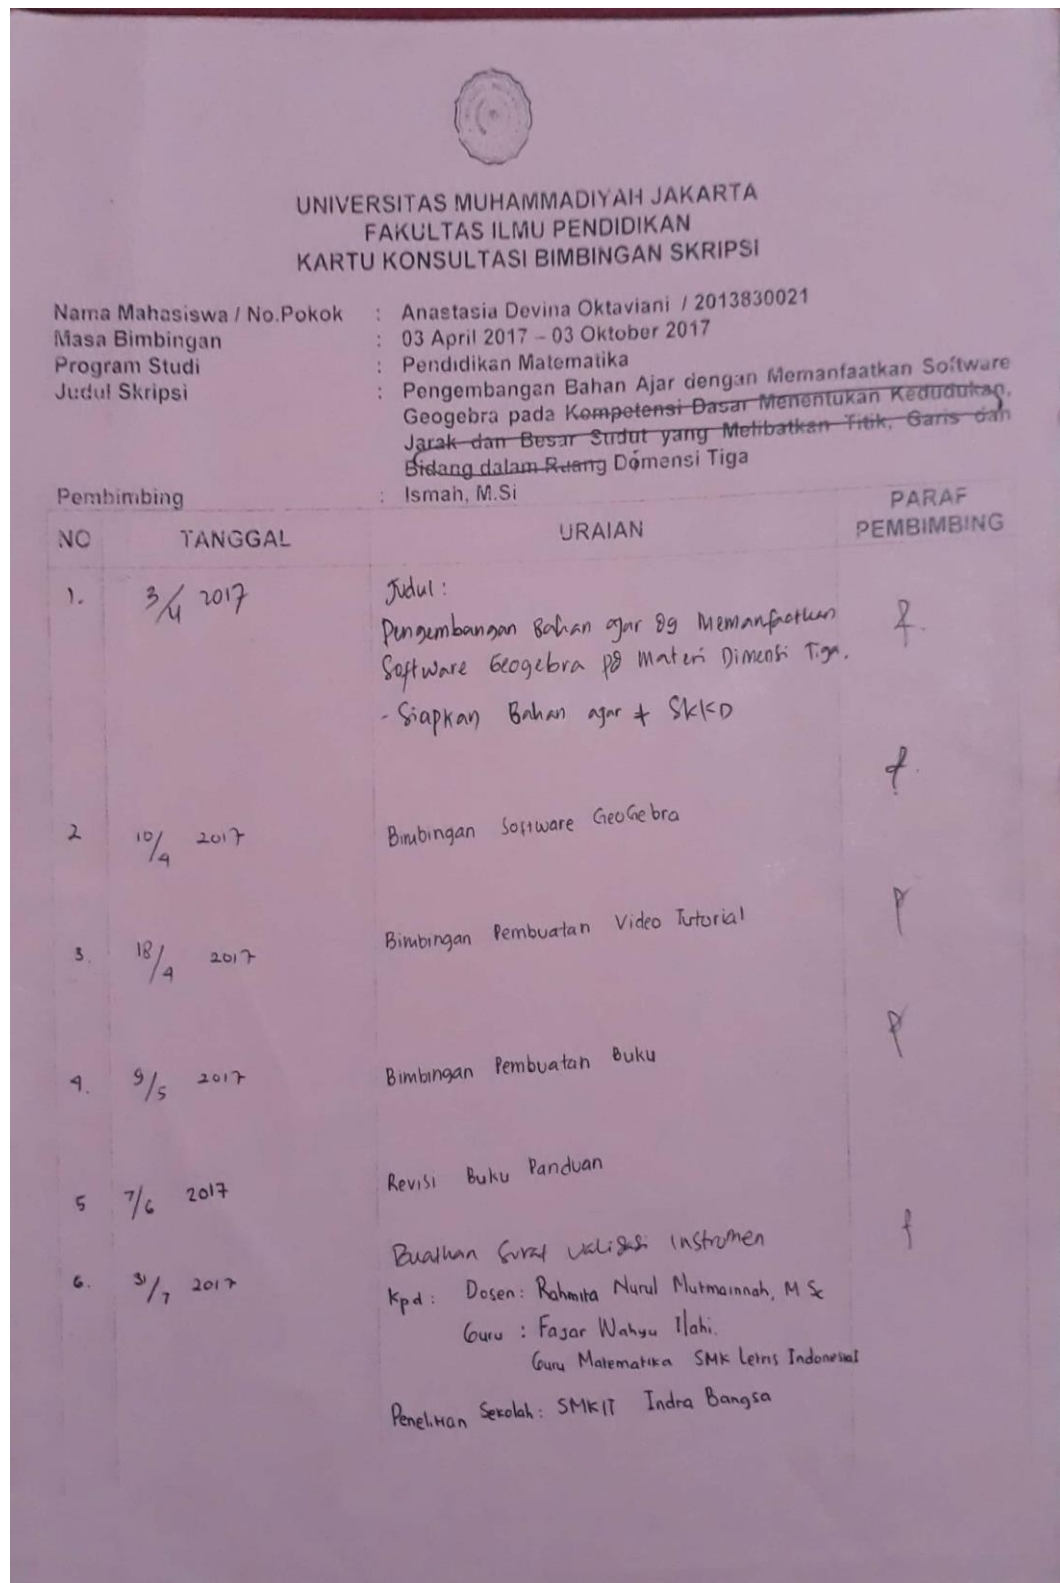 UNIVERSITAS MUHAMMADIYAH JAKARTA
FAKULTAS ILMU PENDIDIKAN
KARTU KONSULTASI BIMBINGAN SKRIPSI
Nama Mahasiswa / No.Pokok : Anastasia Devina Oktaviani / 2013830021
Masa Bimbingan : 03 April 2017 – 03 Oktober 2017
Program Studi : Pendidikan Matematika
Judul Skripsi : Pengembangan Bahan Ajar dengan Memanfaatkan Software
Geogebra pada Kompetensi Dasar Menentukan Kedudukan,
Jarak dan Besar Sudut yang Melibatkan Titik, Garis dan
Bidang dalam Ruang Domensi Tiga
Pembimbing : Ismah, M.Si
NO TANGGAL URAIAN PARAF PEMBIMBING
1. 3/4 2017 Judul :
Pengembangan Bahan ajar dg Memanfaatkan
Software Geogebra pd Materi Dimensi Tiga.
- Siapkan Bahan ajar + SKKD
2 10/4 2017 Bimbingan Software GeoGebra
3. 18/4 2017 Bimbingan Pembuatan Video Tutorial
4. 9/5 2017 Bimbingan Pembuatan Buku
5 7/6 2017 Revisi Buku Panduan
Buatkan Surat Validasi Instrumen
6. 31/7 2017 Kpd : Dosen : Rahmita Nurul Mutmainnah, M Sc
Guru : Fajar Wahyu Ilahi.
Guru Matematika SMK Letris Indonesia
Penelitian Sekolah : SMKIT Indra Bangsa